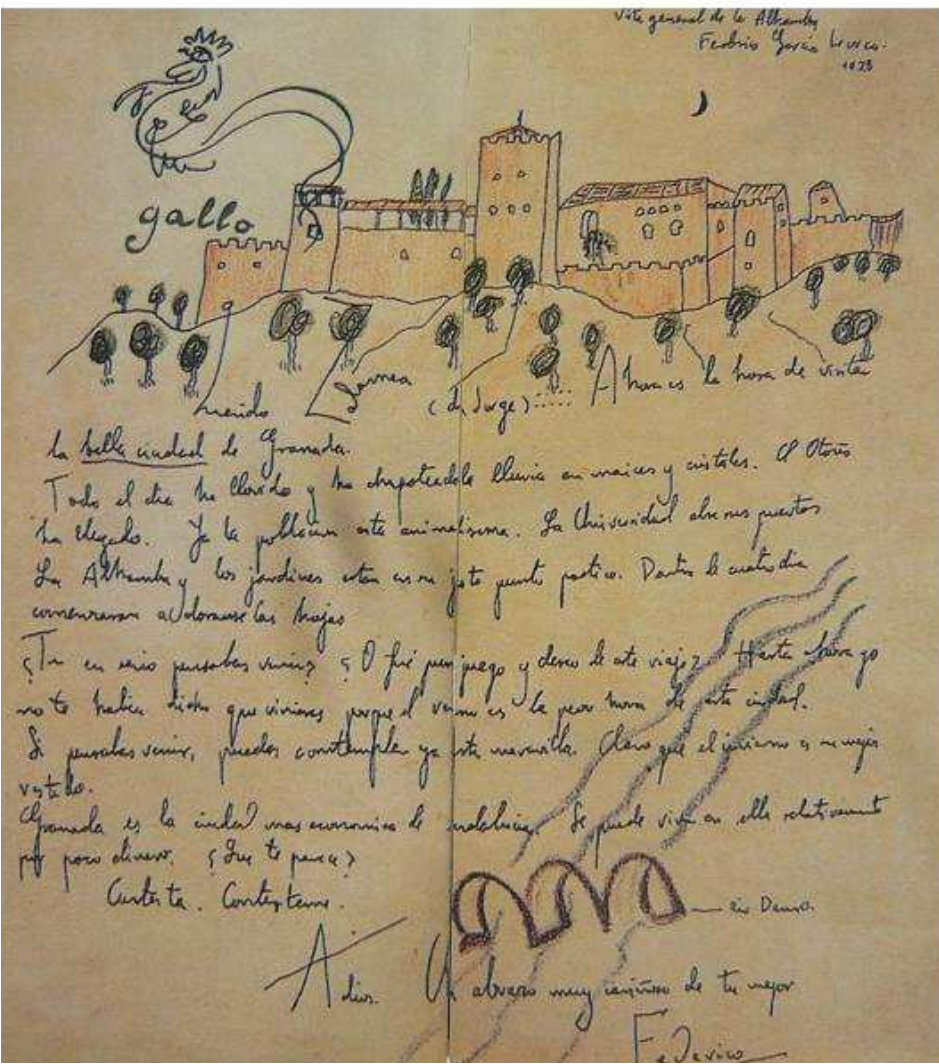 Vista general de la Alhambra
Federico García Lorca.
gallo
(de Jorge)::::: Ahora es la hora de visitar
la bella ciudad de Granada.
Todo el dia ha llovido y ha chapoteado la lluvia en y cristales. El Otoño
ha llegado. Ya la poblacion esta animadisima. La Universidad abre sus puertas
La Alhambra y los jardines estan en su punto poetico. Dentro de cuatro dias
comenzaran a dorarse las hojas
¿Tu en serio pensabas venir? ¿O fué juego y deseo de este viaje? Hasta ahora yo
no te habia dicho que vinieras porque el verano es la peor hora de esta ciudad.
Si pensabas venir, puedes contemplar ya esta maravilla. Claro que el invierno es su mejor
vestido.
Granada es la ciudad mas economica de Andalucia. Se puede vivir en ella relativamente
por poco dinero. ¿Que te parece?
Contesta. Contestame.
rio Dauro
Adios. Un abrazo muy cariñoso de tu mejor
Federico